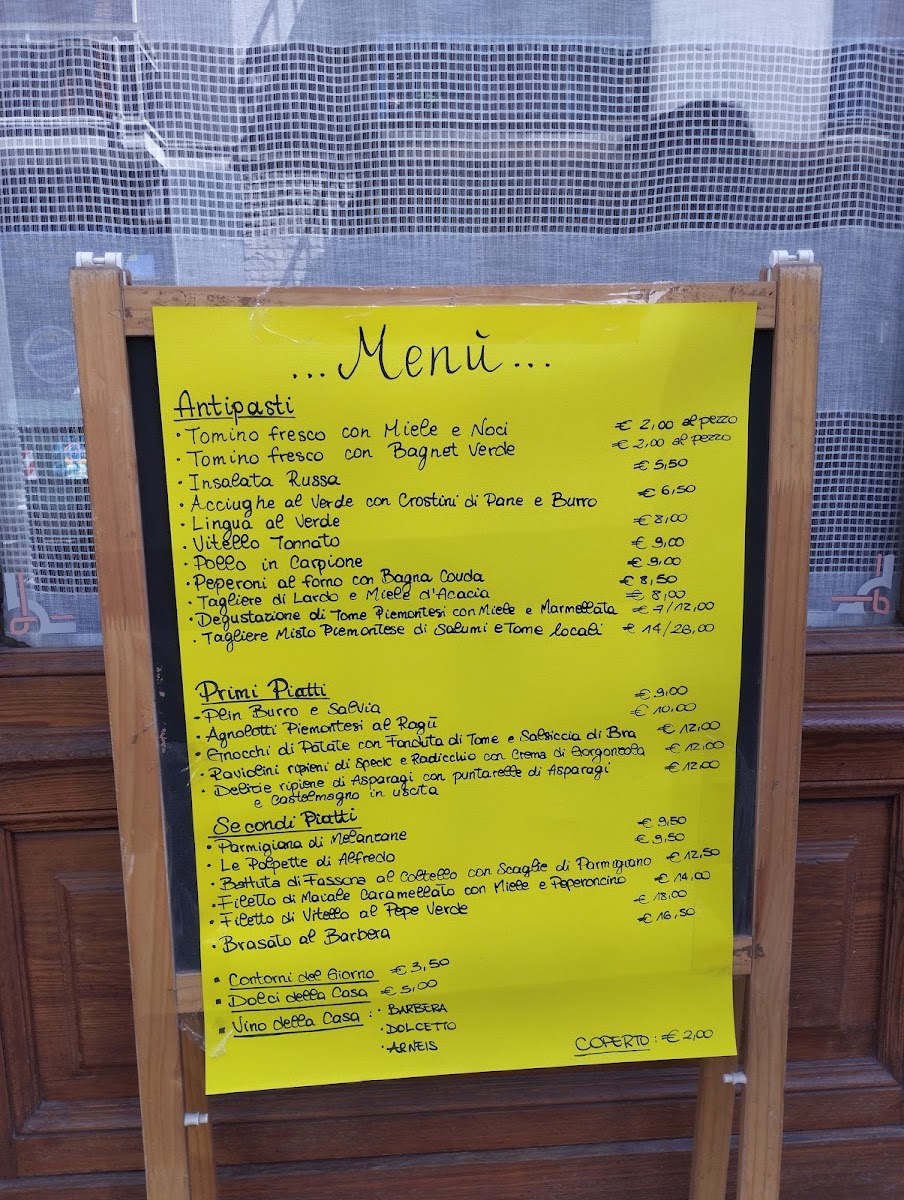 ...Menù...
Antipasti
· Tomino fresco con Miele e Noci € 2,00 al pezzo
· Tomino fresco con Bagnet Verde € 2,00 al pezzo
· Insalata Russa € 5,50
· Acciughe al Verde con Crostini di Pane e Burro € 6,50
· Lingua al Verde € 8,00
· Vitello Tonnato € 9,00
· Pollo in Carpione € 9,00
· Peperoni al forno con Bagna Couda € 8,50
· Tagliere di Lardo e Miele d'Acacia € 8,00
· Degustazione di Tome Piemontesi con Miele e Marmellata € 7/12,00
· Tagliere Misto Piemontese di Salumi e Tome locali € 14/26,00
Primi Piatti
- Plin Burro e Salvia € 9,00
· Agnolotti Piemontesi al Ragù € 10,00
· Gnocchi di Patate con Fonduta di Tome e Salsiccia di Bra € 12,00
· Raviolini ripieni di Speck e Radicchio con Crema di Gorgonzola € 12,00
· Delizie ripiene di Asparagi con puntarelle di Asparagi € 12,00
e Castelmagno in uscita
Secondi Piatti
· Parmigiana di Melanzane € 9,50
· Le Polpette di Alfredo € 9,50
· Battuta di Fassona al Coltello con Scaglie di Parmigiano € 12,50
· Filetto di Maiale Caramellato con Miele e Peperoncino € 14,00
· Filetto di Vitello al Pepe Verde € 18,00
· Brasato al Barbera € 16,50
▪ Contorni del Giorno € 3,50
▪ Dolci della Casa € 5,00
▪ Vino della Casa : · BARBERA
· DOLCETTO
· ARNEIS
COPERTO : € 2,00